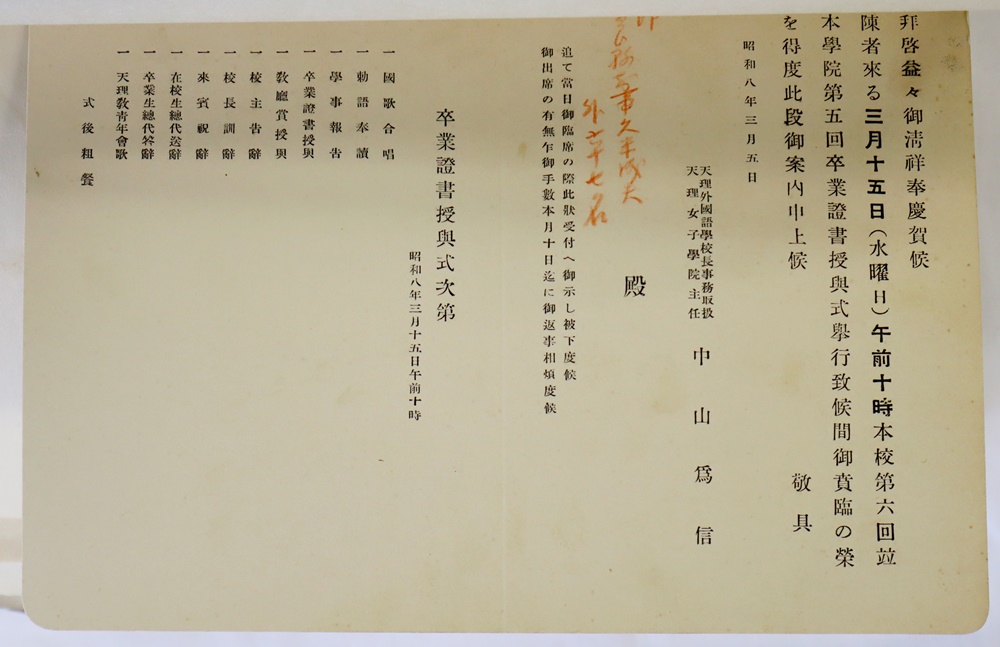 拜啓益々御淸祥奉慶賀候
陳者來る三月十五日（水曜日）午前十時本校第六回竝
本學院第五回卒業證書授與式擧行致候間御賁臨の榮
を得度此段御案內申上候
敬具
昭和八年三月五日
天理外國語學校長事務取扱
天理女子學院主任
中山爲信
殿
外六十七名
追て當日御臨席の際此狀受付へ御示し被下度候
御出席の有無乍御手數本月十日迄に御返事相煩度候
卒業證書授與式次第
昭和八年三月十五日午前十時
一 國歌合唱
一 勅語奉讀
一 學事報告
一 卒業證書授與
一 敎廳賞授與
一 校主告辭
一 校長訓辭
一 來賓祝辭
一 在校生總代送辭
一 卒業生總代答辭
一 天理敎靑年會歌
式後粗餐